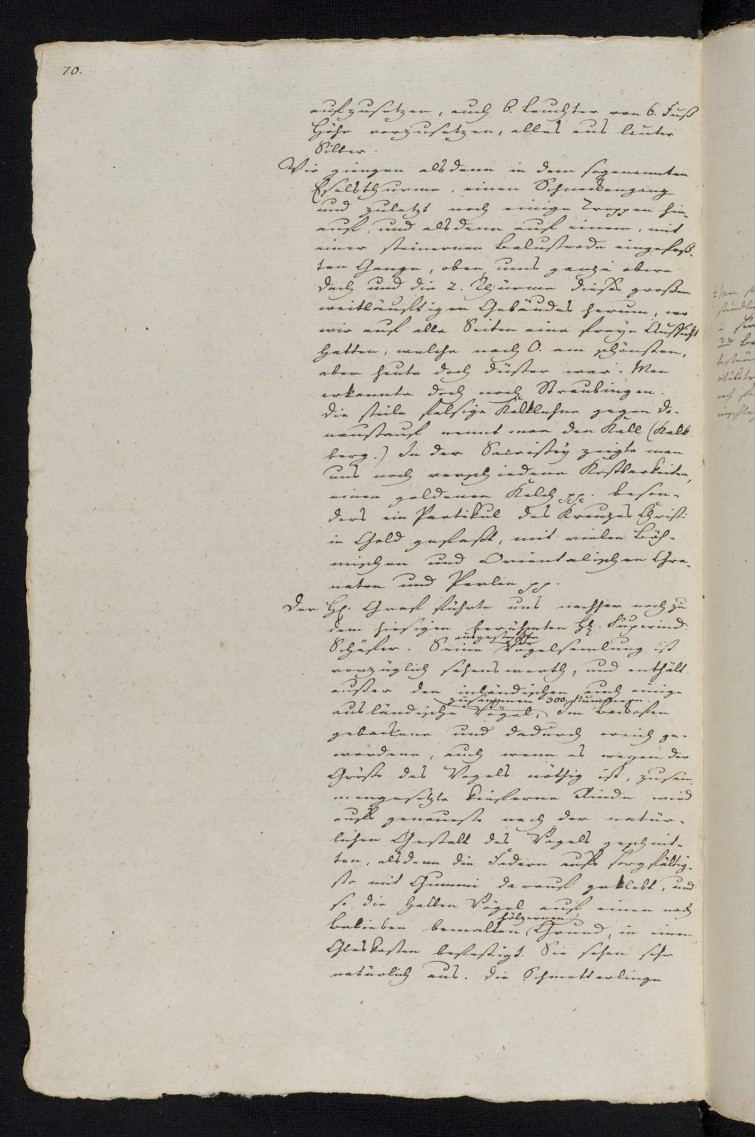 70.
aufzusetzen, auch 6. Leuchter von 6. Fuß
Höhe vorzusetzen, alles aus lauter
Silber.
Wir giengen alsdenn in dem sogenannten
Eselsthurme, einen Schneckengang
und zuletzt noch einige Treppen hin-
auf, und alsdenn auf einem, mit
einer steinernen Balustrade eingefaß-
ten Gange, oben ums ganze obere
Dach und die 2. Thürme dieses großen
weitläuftigen Gebäudes herum, wo
wir auf alle Seiten eine freye Aussicht
hatten, welche nach O. am schönsten,
aber heute doch düster war. Man
erkannte doch noch Straubingen.
Die steile felsige Kalklehne gegen Do-
naustauf nennt man den Kall (Kalk
berg.) In der Sacristey zeigte man
uns noch verschiedene Kostbarkeiten,
einen goldenen Kelch pp. beson-
ders ein Partikul des Kreuzes Christi
in Gold gefaßt, mit vielen Böh-
mischen und Orientalischen Gra-
naten und Perlen pp.
Der H. Graf führte uns nachher noch zu
dem hiesigen berühmten H. Superind.
Schäfer. Seine ausgestopfte Vögelsamlung ist
vorzüglich sehenswerth, und enthält
außer den inländischen auch einige
zusammen 300.
ausländische Vögel, im Backofen
gebackene und dadurch weich ge-
wordene, auch wenn es wegen der
Größe des Vogels nöthig ist, zusam-
mengesetzte kieferne Rinde wird
aufs genaueste nach der natür-
lichen Gestalt des Vogels geschnit-
ten, alsdenn die Federn aufs sorgfältig-
ste mit Gummi darauf geklebt, und
so die halben Vögel auf einen nach
hölzernen
Belieben bemalten Grund, in einem
Glaskasten befestigt. Sie sehen sehr
natürlich aus. Die Schmetterlinge